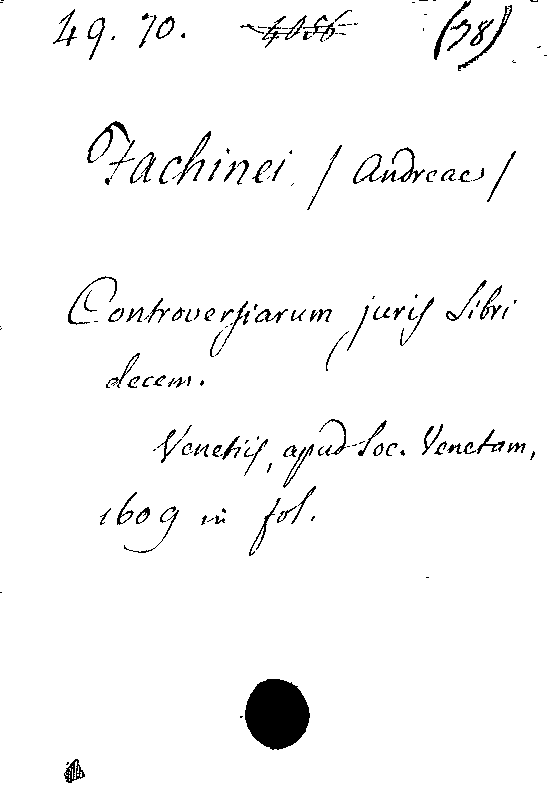 49. 70. 4056 (38)
Fachinei / Andreae /
Controversiarum juris Libri
decem.
Venetiis, apud Soc. Venetam,
1609 in fol.